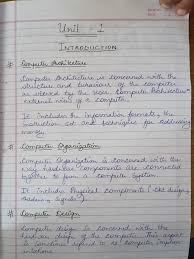 Unit - 1
INTRODUCTION
# Computer Architecture
Computer Architecture is concerned with the
structure and behaviour of the computer
as viewed by the user. Computer Architecture
external view of a computer.
It includes the information formats, the
instruction set and techniques for addressing
memory.
# Computer Organization
Computer Organization is concerned with the
way hardware components are connected
together to form a computer system.
It includes Physical components (
adders, signals).
# Computer Design
Computer design is concerned with the
hardware design of the computer. This aspect
is sometimes referred to as computer implem-
entations